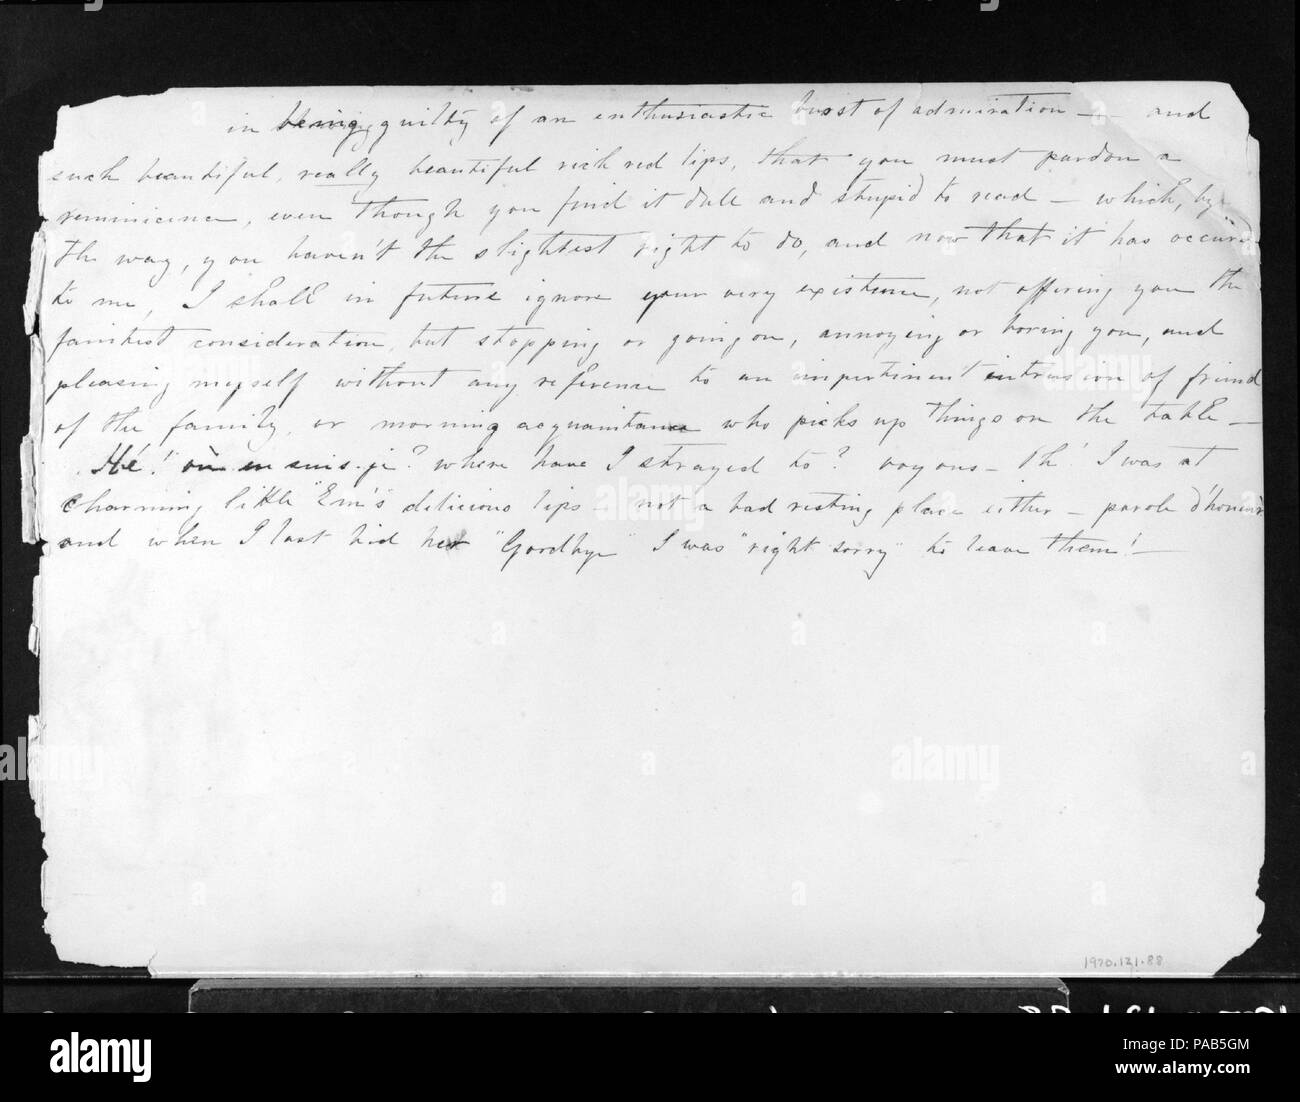 in being guilty of an enthusiastic burst of admiration — - and
such beautiful, really beautiful rich red lips, that you must pardon a
reminicence, even though you find it dull and stupid to read — which, by
the way, you haven't the slightest right to do, and now that it has occured
to me, I shall in future ignore your very existence, not offering you the
faintest consideration, but stopping or going on, annoying or boring you, and
pleasing myself without any reference to an impertinent intrusion of friend
of the family, or morning acquaintance who picks up things on the table —
Hé! où en suis-je? where have I strayed to? voyons — Oh! I was at
charming little "Em's" delicious lips — not a bad resting place either — parole d'honeur
and when I last bid her "Goodbye" I was "right sorry" to leave them! —
1970.121.88
alamy
PAB5GM
www.alamy.com